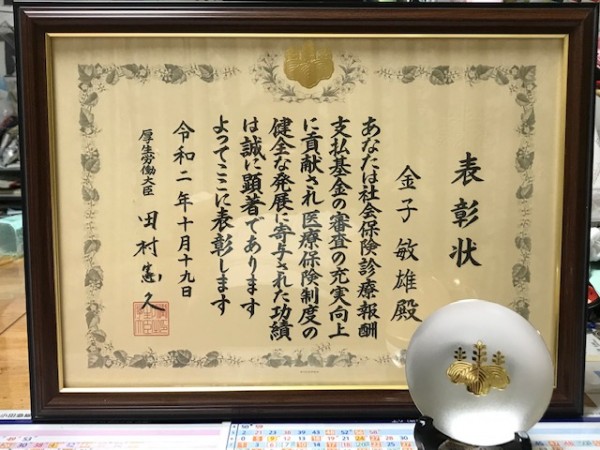 表彰状
金子敏雄殿
あなたは社会保険診療報酬
支払基金の審査の充実向上
に貢献され医療保険制度の
健全な発展に寄与された功績
は誠に顕著であります
よってここに表彰します
令和二年十月十九日
厚生労働大臣 田村憲久